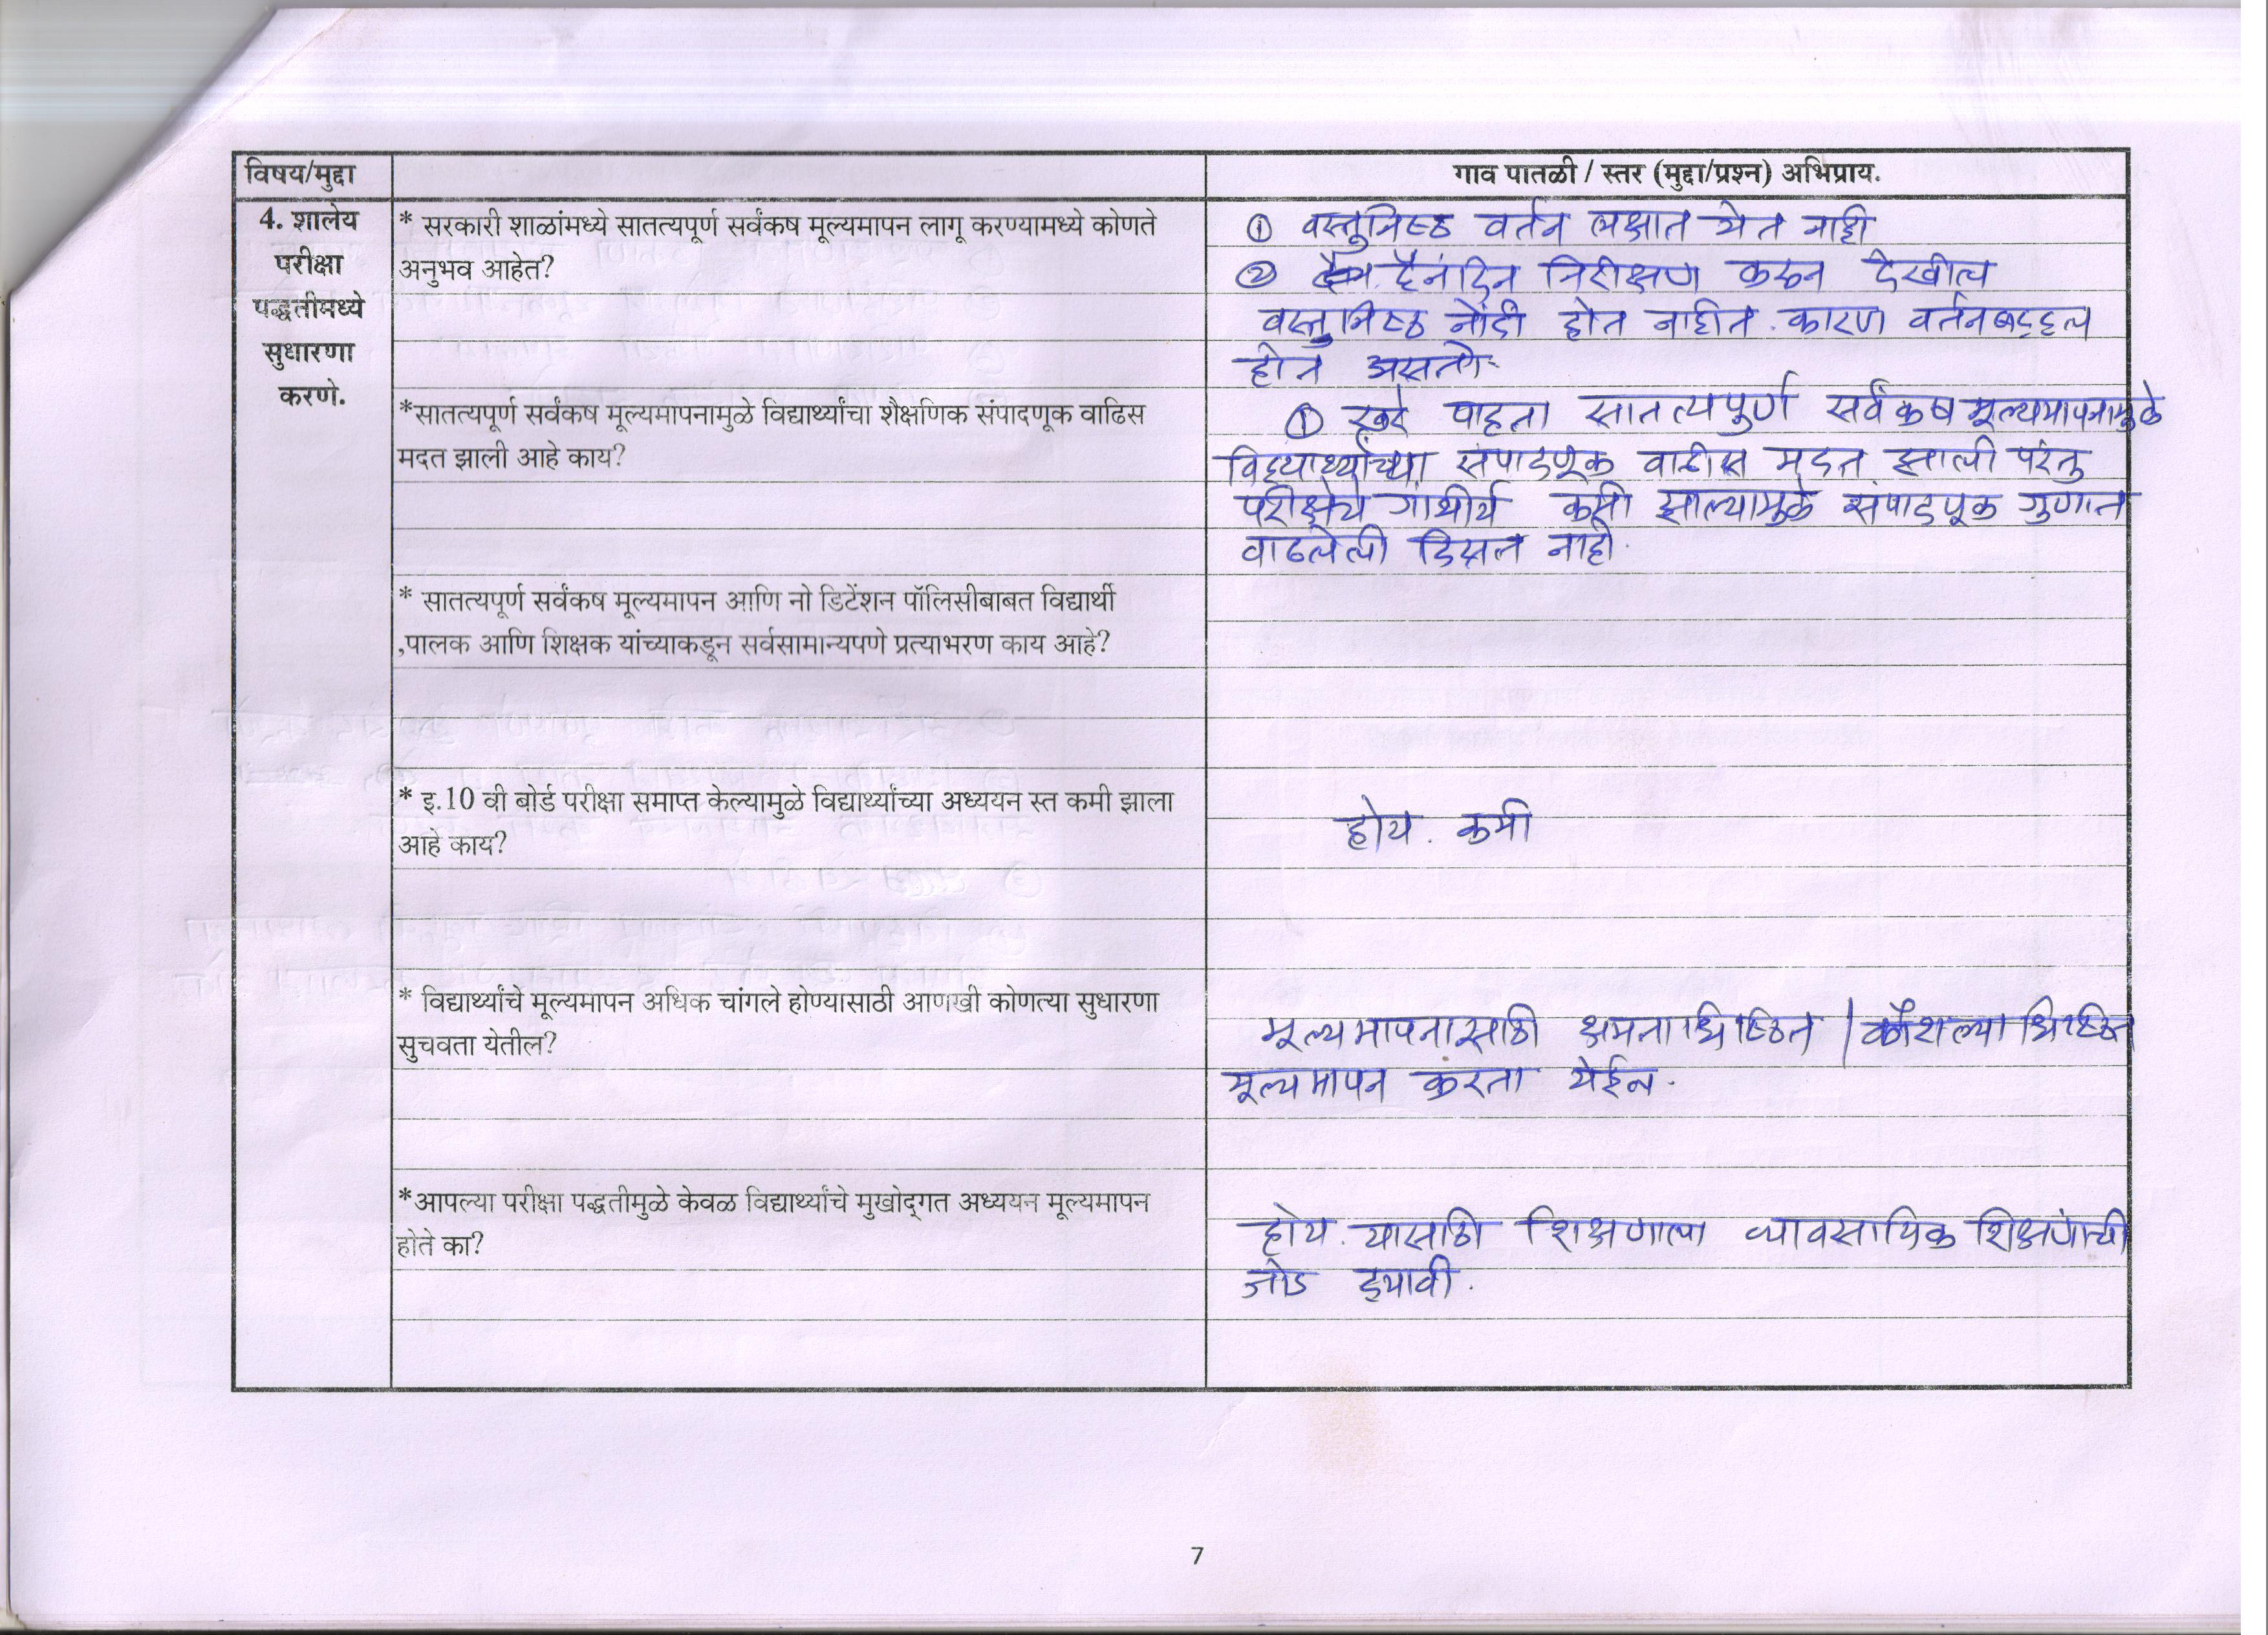 विषय/मुद्दा
गाव पातळी / स्तर (मुद्दा/प्रश्न) अभिप्राय.
4. शालेय
परीक्षा
पद्धतीमध्ये
सुधारणा
करणे.
* सरकारी शाळांमध्ये सातत्यपूर्ण सर्वंकष मूल्यमापन लागू करण्यामध्ये कोणते
अनुभव आहेत?
① वस्तुनिष्ठ वर्तन लक्षात येत नाही
② दैनंदिन निरीक्षण करुन देखील
वस्तुनिष्ठ नोंदी होत नाहीत. कारण वर्तनबद्दल
होत असतो.
*सातत्यपूर्ण सर्वंकष मूल्यमापनामुळे विद्यार्थ्यांचा शैक्षणिक संपादणूक वाढिस
मदत झाली आहे काय?
① खरे पाहता सातत्यपुर्ण सर्वंकष मूल्यमापनामुळे
विद्यार्थ्यांच्या संपादणूक वाढीस मदत झाली परंतु
परीक्षेचे गांभीर्य कमी झाल्यामुळे संपादणूक गुणात
वाढलेली दिसत नाही.
* सातत्यपूर्ण सर्वंकष मूल्यमापन आणि नो डिटेंशन पॉलिसीबाबत विद्यार्थी
,पालक आणि शिक्षक यांच्याकडून सर्वसामान्यपणे प्रत्याभरण काय आहे?
* इ.10 वी बोर्ड परीक्षा समाप्त केल्यामुळे विद्यार्थ्यांच्या अध्ययन स्त कमी झाला
आहे काय?
होय. कमी
* विद्यार्थ्यांचे मूल्यमापन अधिक चांगले होण्यासाठी आणखी कोणत्या सुधारणा
सुचवता येतील?
मूल्यमापनासाठी क्षमताधिष्ठित / कौशल्याधिष्ठित
मूल्यमापन करता येईल.
*आपल्या परीक्षा पद्धतीमुळे केवळ विद्यार्थ्यांचे मुखोद्‌गत अध्ययन मूल्यमापन
होते का?
होय. यासाठी शिक्षणाला व्यावसायिक शिक्षणाची
जोड द्यावी.
7